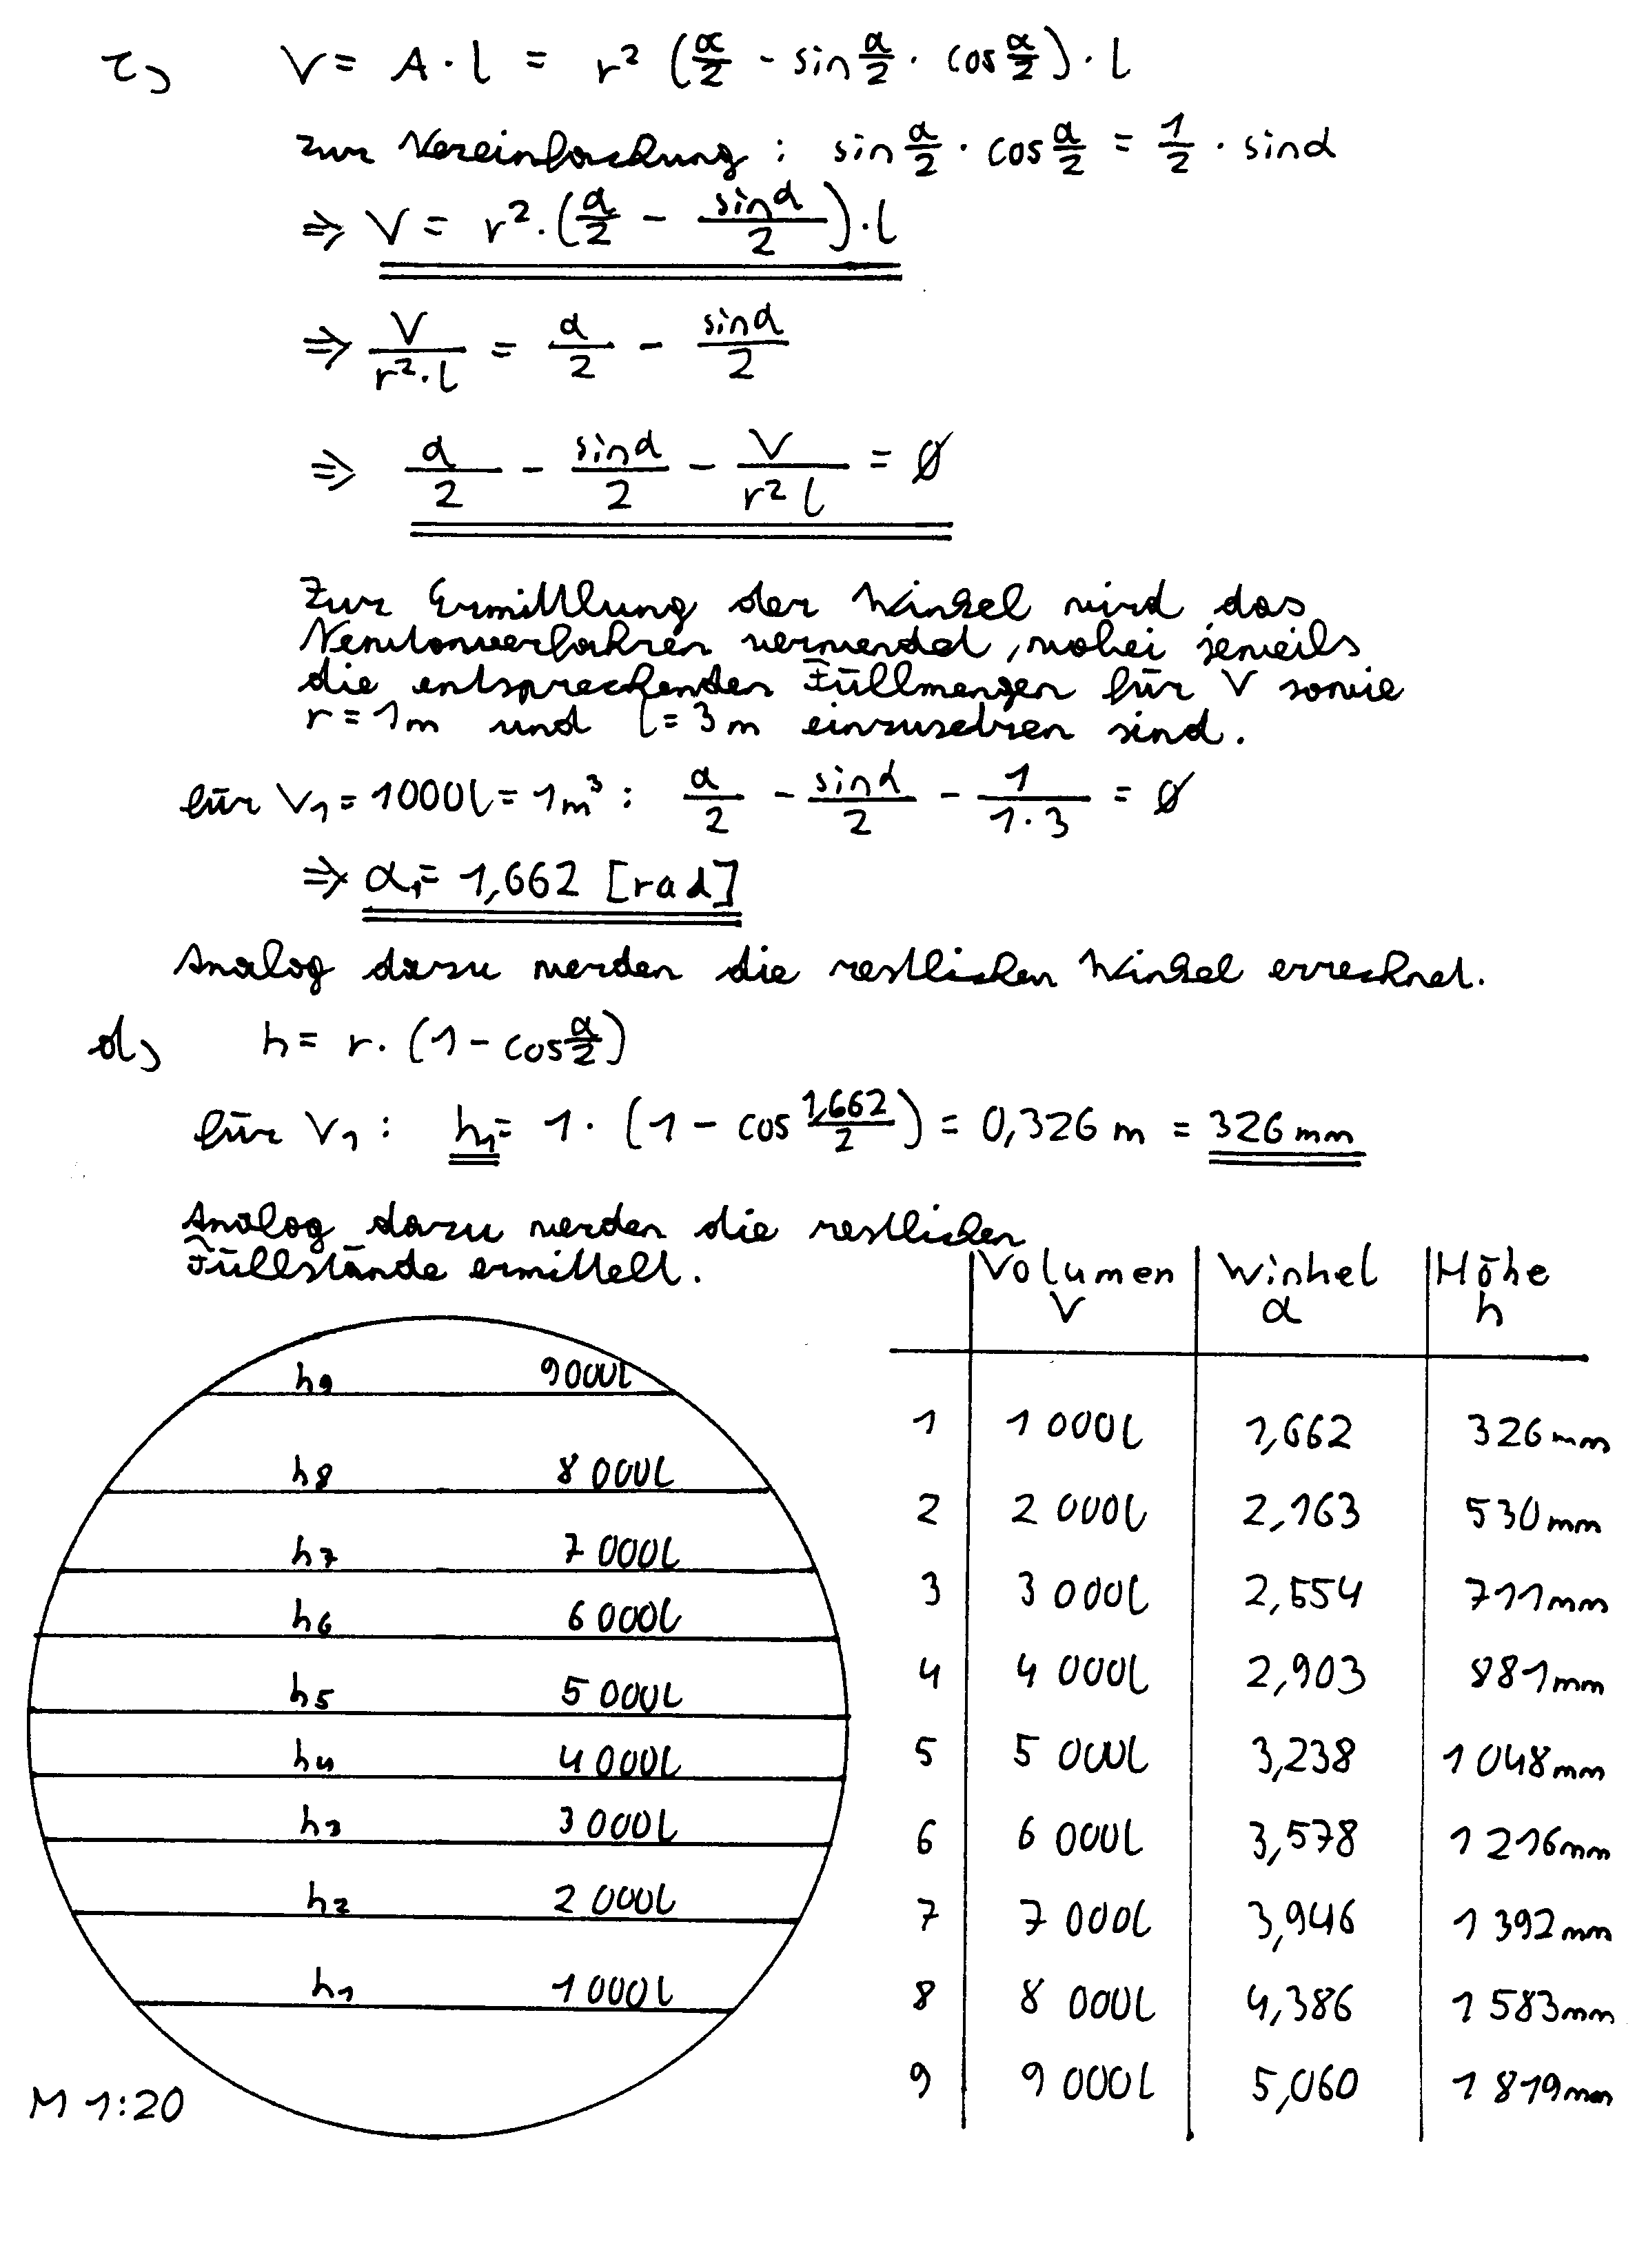 c) V = A · l = r² (α/2 - sin α/2 · cos α/2) · l
zur Vereinfachung : sin α/2 · cos α/2 = 1/2 · sin α
⇒ V = r² · (α/2 - sin α/2) · l
⇒ V/(r² · l) = α/2 - sin α/2
⇒ α/2 - sin α/2 - V/(r² l) = Ø
Zur Ermittlung der Winkel wird das
Newtonverfahren verwendet, wobei jeweils
die entsprechenden Füllmengen für V sowie
r = 1m und l = 3m einzusetzen sind.
für V₁ = 1000l = 1m³ : α/2 - sin α/2 - 1/(1 · 3) = Ø
⇒ α₁ = 1,662 [rad]
Analog dazu werden die restlichen Winkel errechnet.
d) h = r · (1 - cos α/2)
für V₁ : h₁ = 1 · (1 - cos 1,662/2) = 0,326 m = 326 mm
Analog dazu werden die restlichen
Füllstände ermittelt.
h9 9000l
h8 8 000l
h7 7 000l
h6 6 000l
h5 5 000l
h4 4 000l
h3 3 000l
h2 2 000l
h1 1 000l
M 1:20
Volumen Winkel Höhe
V α h
1 1 000l 1,662 326 mm
2 2 000l 2,163 530 mm
3 3 000l 2,554 711 mm
4 4 000l 2,903 881 mm
5 5 000l 3,238 1 048 mm
6 6 000l 3,578 1 216 mm
7 7 000l 3,946 1 392 mm
8 8 000l 4,386 1 583 mm
9 9 000l 5,060 1 819 mm